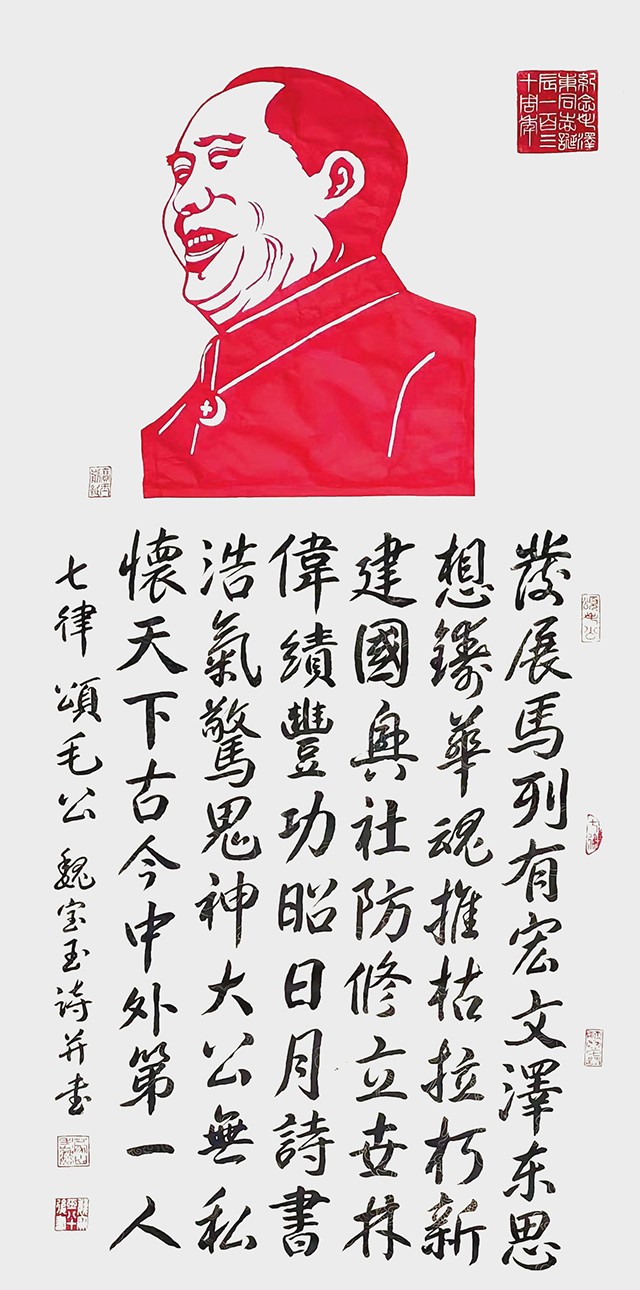 紀念毛澤
東同志誕
辰一百三
十周年
頌毛公
發展馬列有宏文澤东思
想鑄華魂推枯拉朽新
建國興社防修立世林
偉績豐功昭日月詩書
浩氣驚鬼神大公無私
懷天下古今中外第一人
七律 頌毛公 魏宝玉詩并书